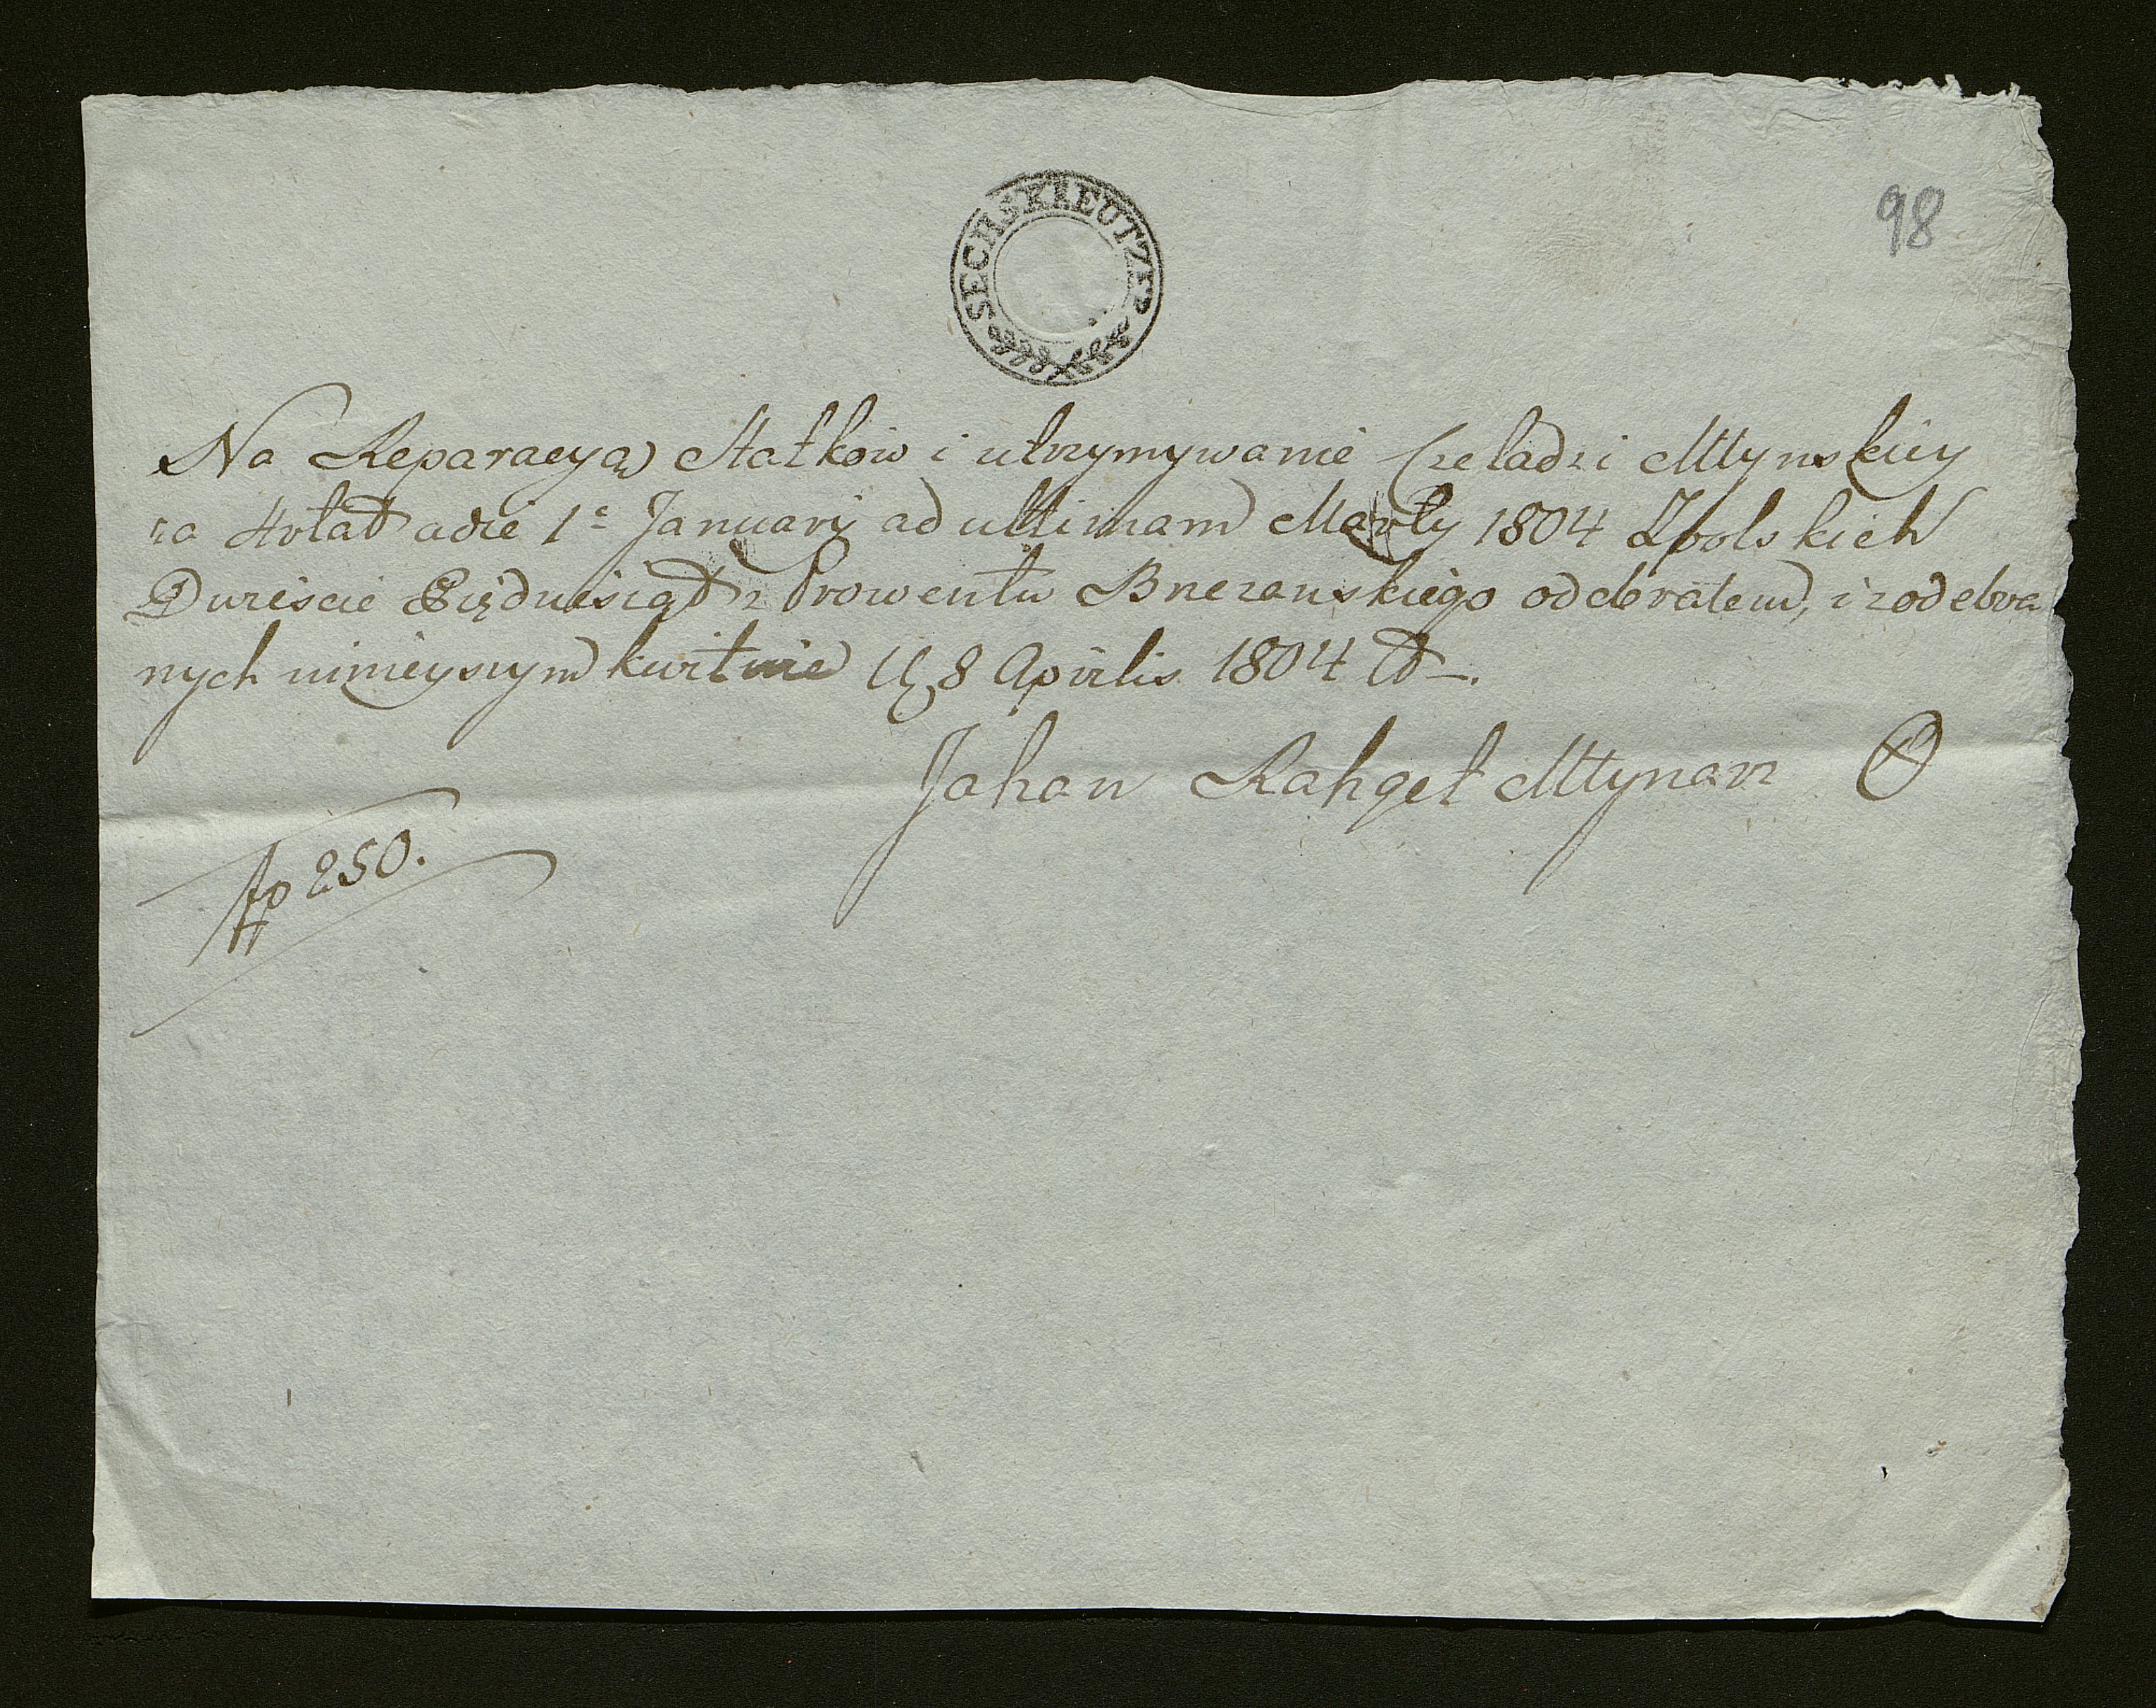 SECHS KREUTZER
98
Na Reparacyą Statków i utrzymywanie Czeladzi Młynskiey
za Kwartał a die 1ᵉ January ad ultimam Marty 1804 Zł polskich
Dwieście Pięćdziesiąt z Prowentu Brzezanskiego odebrałem, i z odebra
nych ninieyszym kwituie 8 Aprilis 1804
Johan Młynarz
fp 250.